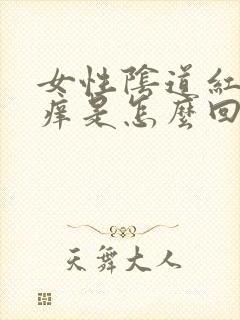 女性陰道紅
癢是怎麼回
天舞大人